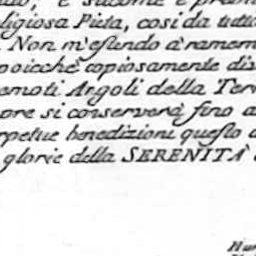 ligiosa Pietà, così da tutto
. Non m'esfundo à ramem
poicchè copiosamente div
emoti Angoli della Ter
pre si conserverà fino a
rpetue benedizioni questo
glorie della SERENITÀ
Hu